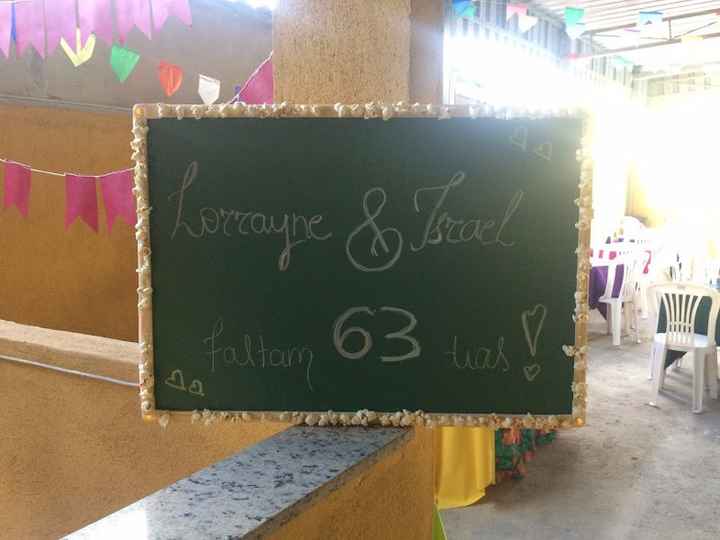 Lorrayne & Israel
faltam 63 dias!